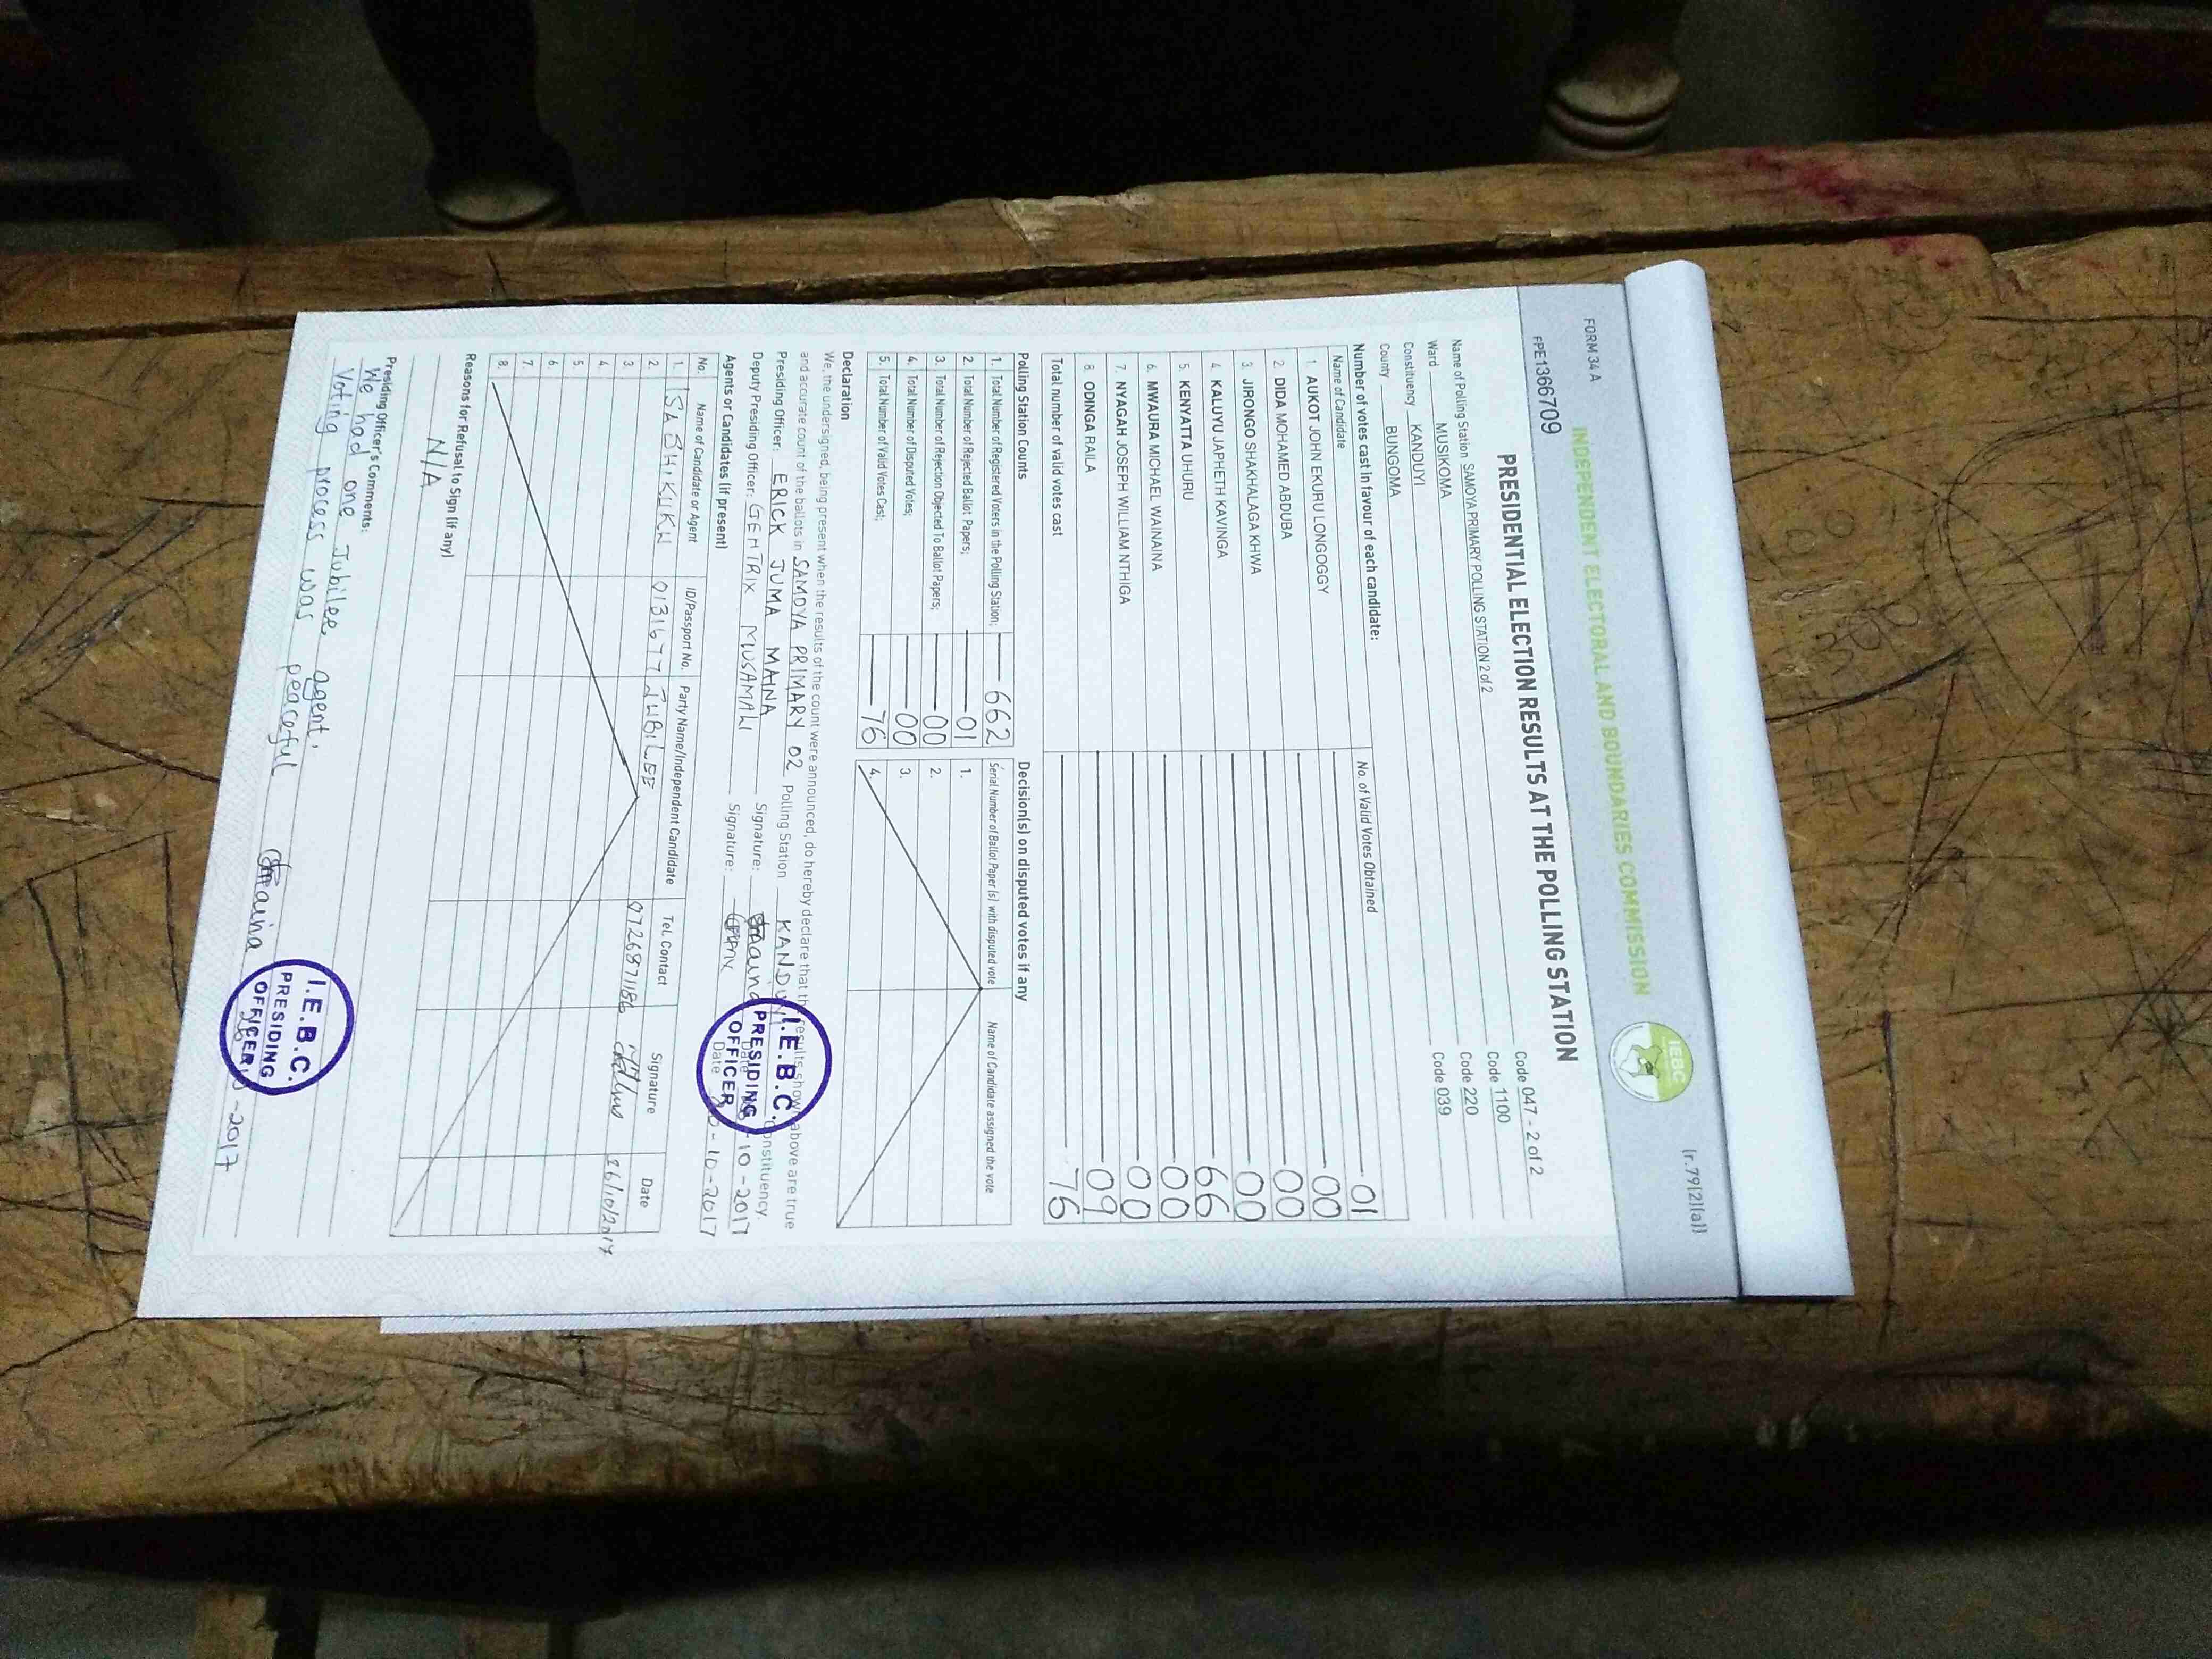 FORM 34 A
(r.79(2)(a))
INDEPENDENT ELECTORAL AND BOUNDARIES COMMISSION
IEBC
FPE1366709
PRESIDENTIAL ELECTION RESULTS AT THE POLLING STATION
Name of Polling Station SAMOYA PRIMARY POLLING STATION 2 of 2 Code 047 - 2 of 2
Ward MUSIKOMA Code 1100
Constituency KANDUYI Code 220
County BUNGOMA Code 039
Number of votes cast in favour of each candidate:
Name of Candidate No. of Valid Votes Obtained
1. AUKOT JOHN EKURU LONGOGGY 01
2. DIDA MOHAMED ABDUBA 00
3. JIRONGO SHAKHALAGA KHWA 00
4. KALUYU JAPHETH KAVINGA 00
5. KENYATTA UHURU 66
6. MWAURA MICHAEL WAINAINA 00
7. NYAGAH JOSEPH WILLIAM NTHIGA 00
8. ODINGA RAILA 09
Total number of valid votes cast 76
Polling Station Counts
1. Total Number of Registered Voters in the Polling Station; 662
2. Total Number of Rejected Ballot Papers; 01
3. Total Number of Rejection Objected To Ballot Papers; 00
4. Total Number of Disputed Votes; 00
5. Total Number of Valid Votes Cast; 76
Decision(s) on disputed votes if any
Serial Number of Ballot Paper(s) with disputed vote Name of Candidate assigned the vote
1.
2.
3.
4.
Declaration
We, the undersigned, being present when the results of the count were announced, do hereby declare that the results shown above are true
and accurate count of the ballots in SAMOYA PRIMARY 02 Polling Station KANDUYI Constituency.
Presiding Officer: ERICK JUMA MAINA Signature: Maina Date -10-2017
Deputy Presiding Officer: GENTRIX MUSAMALI Signature: Date -10-2017
I.E.B.C. PRESIDING OFFICER
Agents or Candidates (if present)
No. Name of Candidate or Agent ID/Passport No. Party Name/Independent Candidate Tel. Contact Signature Date
1. 01316777 JUBILEE 0726871186 26/10/2017
2.
3.
4.
5.
6.
7.
8.
Reasons for Refusal to Sign (if any)
N/A
Presiding Officer's Comments:
We had one Jubilee agent.
Voting process was peaceful
Maina -2017
I.E.B.C. PRESIDING OFFICER